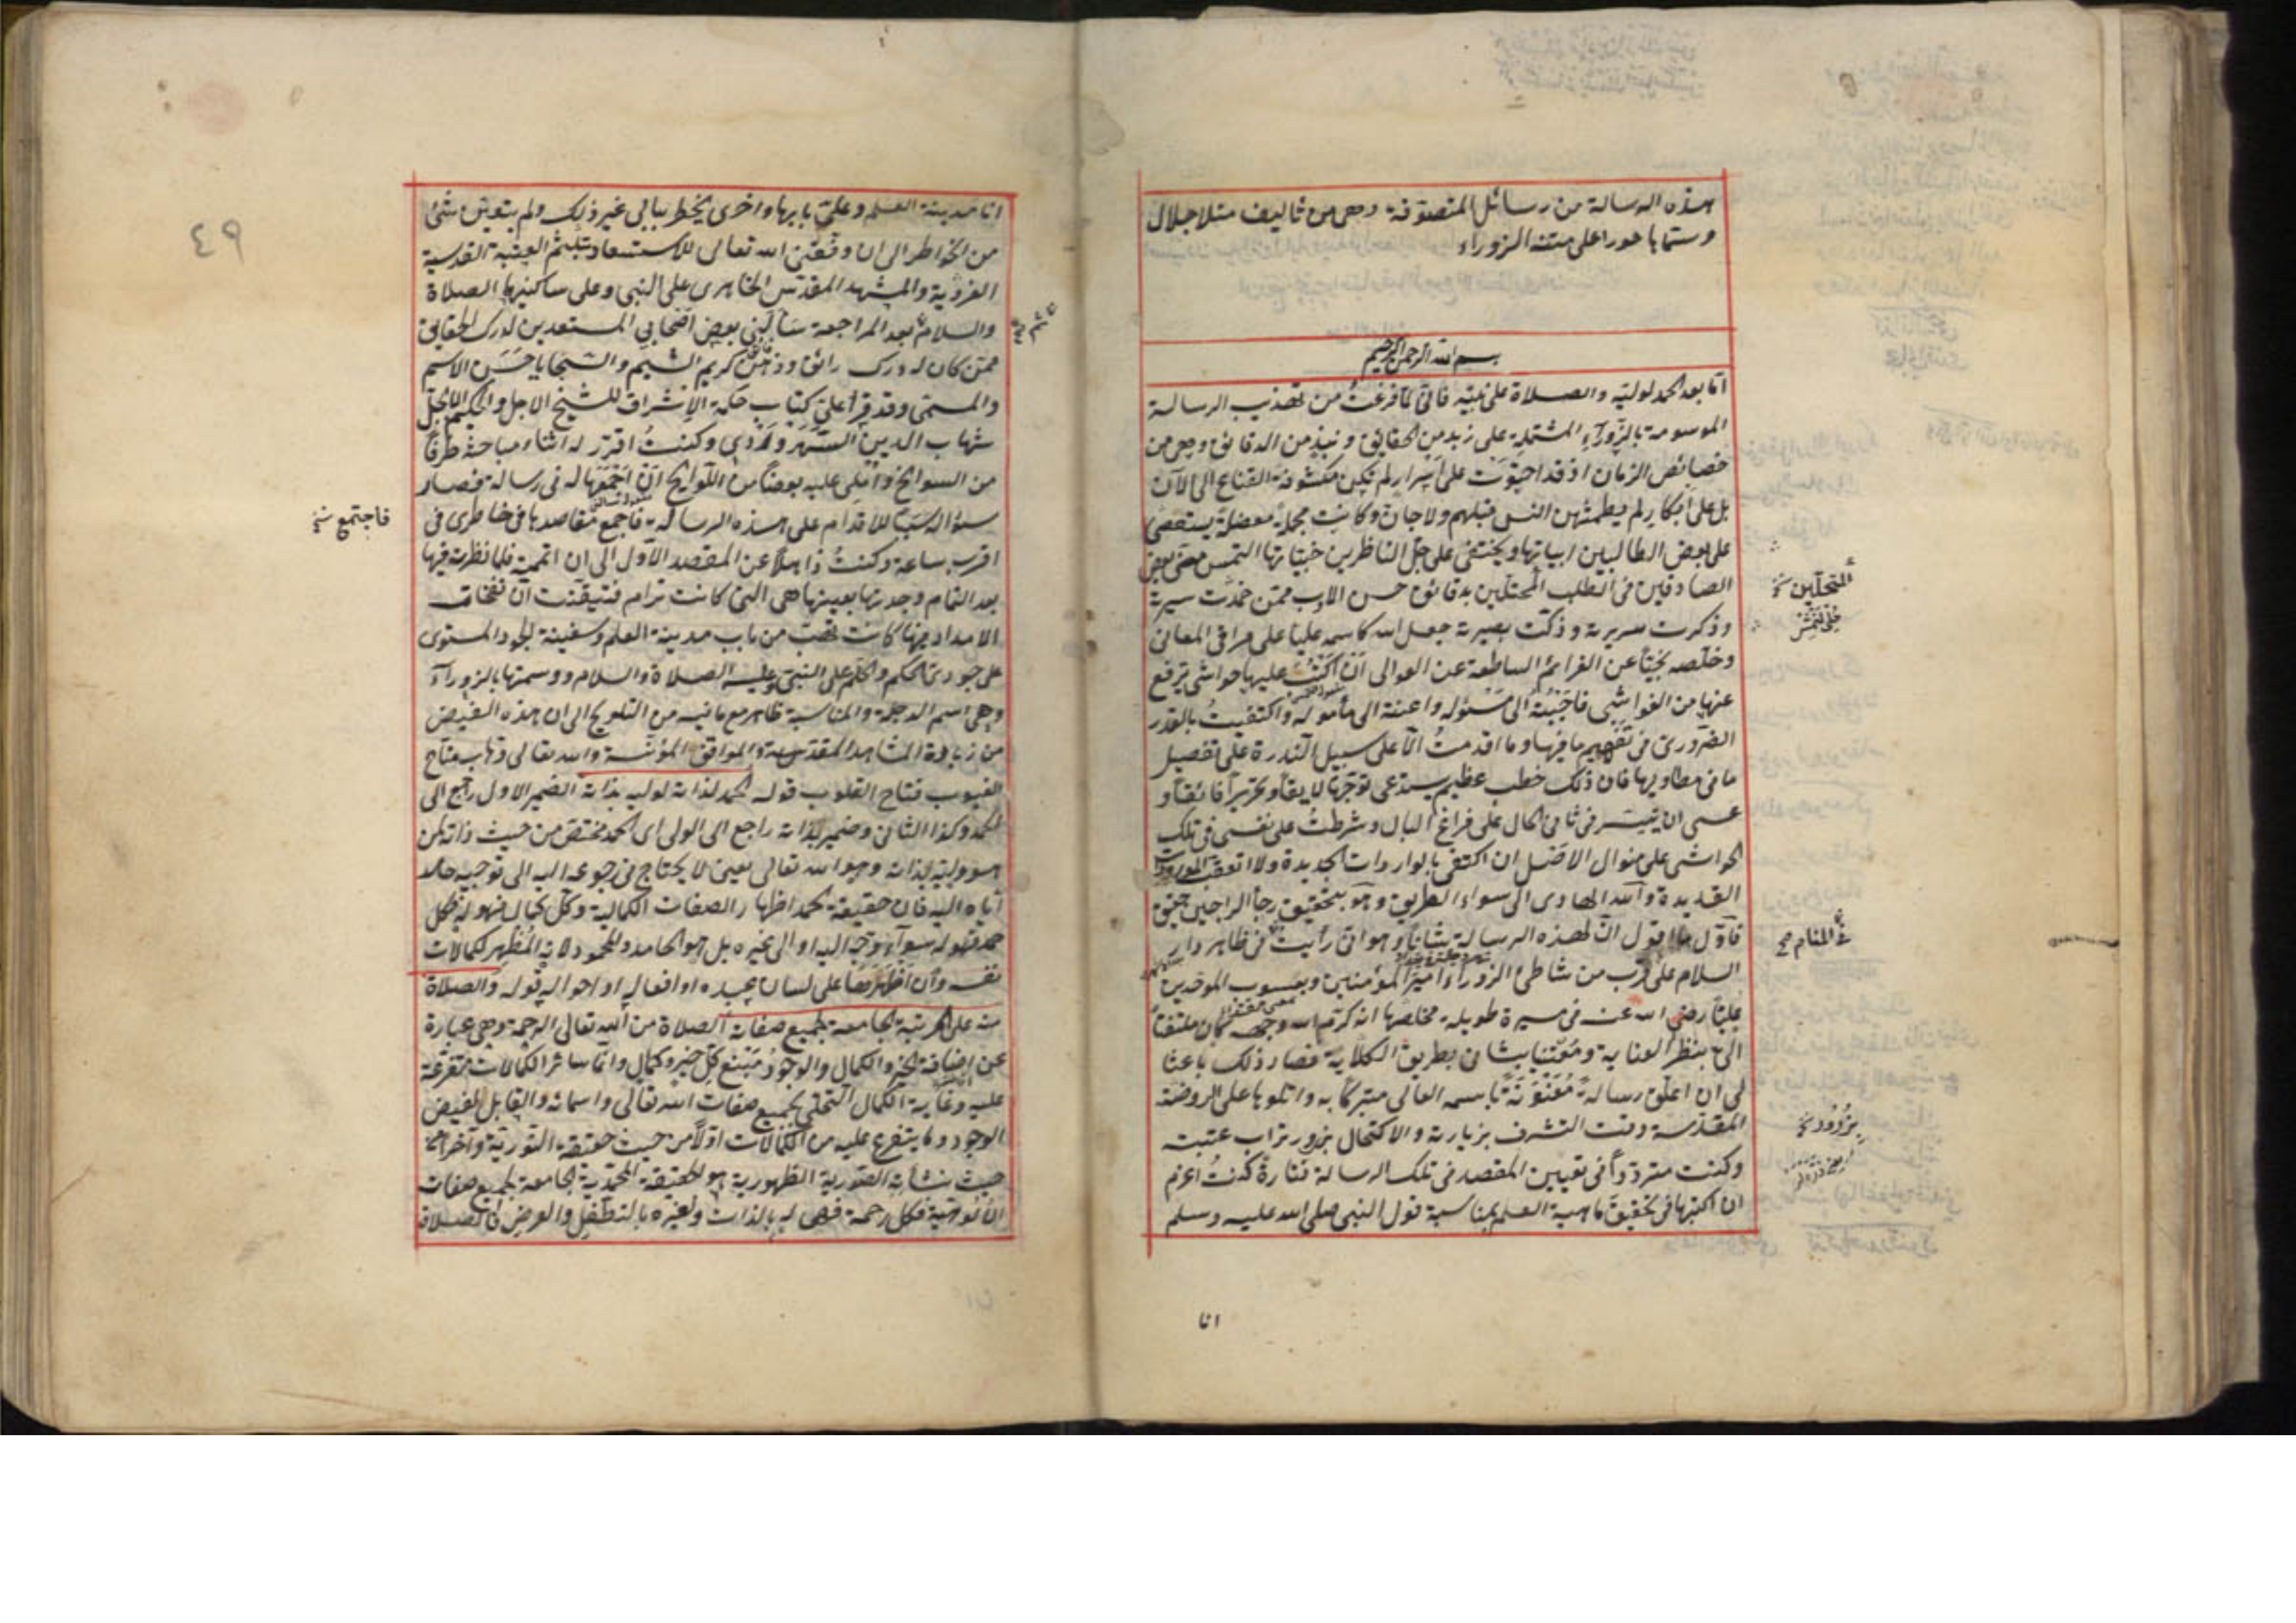 هذه الرسالة من رسائل المتصوفة وهى من تأليف منلا جلال
وسماها حورا على متنه الزوراء
بسم الله الرحمن الرحيم
اما بعد الحمد لوليه والصلاة على نبيه فانى لما فرغت من تهذيب الرسالة
الموسومة بالزوراء المشتملة على زبد من الحقايق ونبذ من الدقايق وهى من
خصائص الزمان اذ قد احتوت على اسرار لم تكن مكشوفة القناع الى الآن
بل على ابكار لم يطمثهن انس قبلهم ولا جان وكانت مجملة معضلة يستعصى
على بعض الطالبين ابياتها ويختفى على جل الناظرين خبيئاتها التمس منى بعض
الصادقين فى الطلب المحتلين بدقائق حسن الادب ممن حمدت سيرته
وذكرت سريرته وذكت بصيرته جعل الله كاسمه عليا على مراقى المعانى
وخلصه نجيا عن الغرائم الساطعة عن العوالى ان اكتب عليها حواشى يرفع
عنها من الغواشى فاجبته الى مسئوله واعنته الى مأموله واكتفيت بالقدر
الضرورى فى تفهيم ما فيها وما اقدمت الا على سبيل الندرة على تفصيل
ما فى مطاويها فان ذلك خطب عظيم يستدعى توجها لايقا وتحريرا فائقا و
عسى ان يتيسر فى ثانى الحال على فراغ البال وشرطت على نفسى فى تلك
الحواشى على منوال الاصل ان اكتفى بالواردات الجديدة ولا اتعقب الموروثات
القديدة والله الهادى الى سواء الطريق وهو بتحقيق رجاء الراجين حقيق
فاول ما اقول ان لهذه الرسالة شانا وهو انى رأيت فى ظاهر دار
السلام على قرب من شاطئ الزوراء امير المؤمنين ويعسوب الموحدين
عليا رضى الله عنه فى مسيرة طويلة مخلصها انه كرم الله وجهه كان ملتفتا
الى بنظر العناية ومعتنيا بشانى بطريق الكلاية فصار ذلك باعثا
لى ان اعلق رسالة معنونة باسمه العالى متبركا به واتلوها على الروضة
المقدسة وقت التشرف بزيارته والاكتحال بزور تراب عتبته
وكنت مترددا فى تعيين المقصد فى تلك الرسالة فتارة كنت اعزم
ان اكتبها فى تحقيق ماهية العلم بمناسبة قول النبى صلى الله عليه وسلم
المتحلين نخ
فى المنام صح
بزوود نخ
انا
انا مدينة العلم وعلى بابها واخرى يخطر ببالى غير ذلك ولم يتعين شئ
من الخواطر الى ان وفقنى الله تعالى للاستسعاد بلثم العتبة القدسية
الغروية والمشهد المقدس الحائرى على النبى وعلى ساكنيها الصلاة
والسلام بعد المراجعة سألنى بعض اصحابى المستعدين لدرك الحقايق
ممن كان له درك رائق وذهن كريم الشيم والسجايا حسن الاسم
والمسمى وقد قرأ على كتاب حكمة الاشراق للشيخ الاجل والحكيم الابجل
شهاب الدين السهروردى وكنت اقرر له اثناء مباحثه طرفا
من السوانح واملى عليه بعضا من اللوايح ان اجمعها له فى رسالة فصار
سؤاله سببا للاقدام على هذه الرسالة فاجمع مقاصدها فى خاطرى فى
اقرب ساعة وكنت ذاهلا عن المقصد الاول الى ان اتممته فلما نظرت فيها
بعد التمام وجدتها بعينها هى التى كانت ترام فتيقنت ان نفحات
الامداد فيها كانت تهب من باب مدينة العلم وسفينة الجود المستوى
على جودى الحكم والحلم على النبى وعليه الصلاة والسلام ووسمتها بالزوراء
وهى اسم الدجلة والمناسبة ظاهر مع ما فيه من التلويح الى ان هذه الفيض
من زيارة المشاهد المقدسة والمواقف المؤنسة والله تعالى وهاب مناح
الغيوب فتاح القلوب قوله الحمد لذاته لوليه بذاته الضمير الاول راجع الى
الحمد وكذا الثانى وضمير لذاته راجع الى الولى اى الحمد مختص من حيث ذاته لمن
هو وليه لذاته وهو الله تعالى يعنى لا يحتاج فى رجوعه اليه الى توجيه حامد
اياه اليه فان حقيقة الحمد اظهار الصفات الكمالية وكل كمال فهو له فكل
حمد فهو له سواء وجه اليه او الى غيره بل هو الحامد والمحمود لانه المظهر لكمالات
نفسه وان اظهر بعضا على لسان عبيده او افعاله او احواله قوله والصلاة
منه على المرتبة الجامعة لجميع صفاته الصلاة من الله تعالى الرحمة وهى عبارة
عن افاضة الخير والكمال والوجود منبع كل خير وكمال وانما سائر الكمالات متفرعة
عليه وغاية الكمال التحلى بجميع صفات الله تعالى واسمائه والقابل لفيض
الوجود وما يتفرع عليه من الكمالات اولا من حيث حقيقته النورية وآخرا من
حيث نشأته الصورية الظهورية هو الحقيقة المحمدية الجامعة لجميع صفات
الالوهية فكل رحمة فهى له بالذات ولغيره بالتطفل والعرض فالصلاة
فاجتمع نخ
٤٩